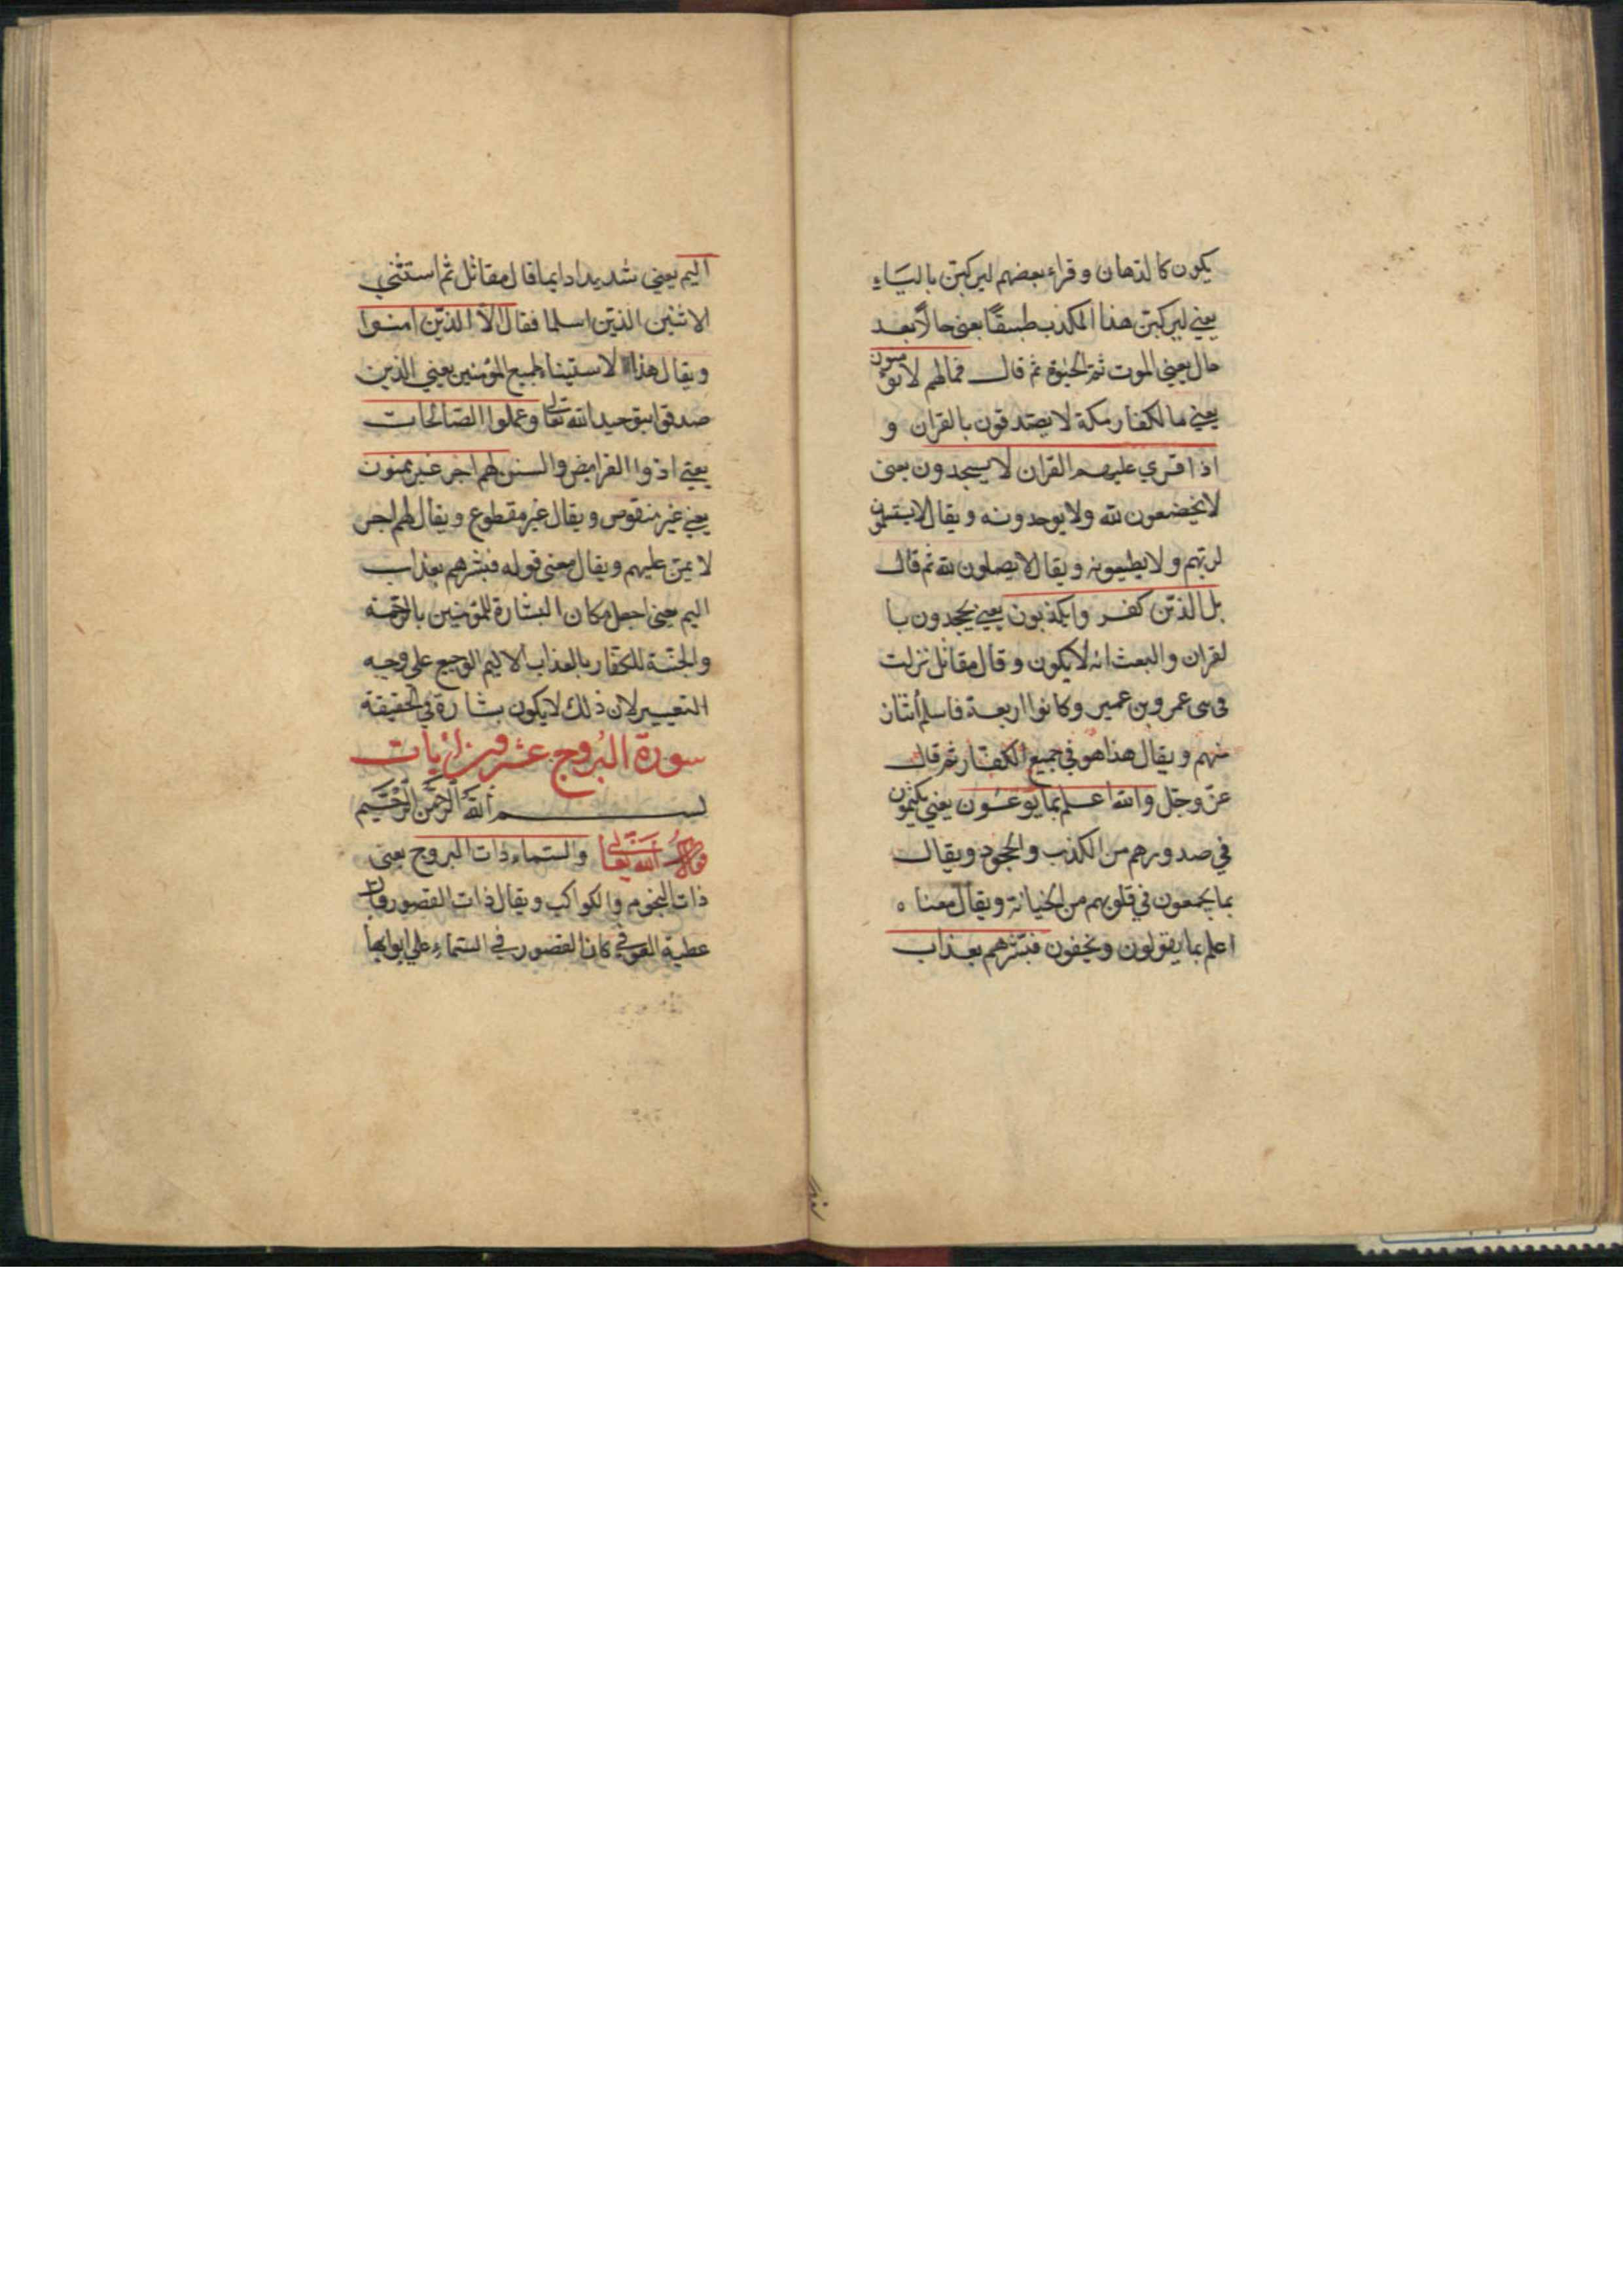 يكون كالدهان وقراء بعضهم ليركبن بالياء
يعني ليركبن هذا المكذب طبقًا يعني حالًا بعد
حال يعني الموت ثم الحيوة ثم قال فمالهم لا يؤمنون
يعني ما لكفار مكة لا يصدقون بالقران و
اذا قري عليهم القران لا يسجدون يعني
لا يخضعون لله ولا يوحدونه ويقال لا يستسلمون
لربهم ولا يطيعونه ويقال لا يصلون لله ثم قال
بل الذين كفروا يكذبون يعني يجحدون با
لقران والبعث انه لا يكون وقال مقاتل نزلت
في بني عمرو بن عمير وكانوا اربعة فاسلم اثنان
منهم ويقال هذا هو في جميع الكفار ثم قال
عز وجل والله اعلم بما يوعون يعني يكتمون
في صدورهم من الكذب والجحود ويقال
بما يجمعون في قلوبهم من الخيانة ويقال معناه
اعلم بما يقولون ويخفون فبشرهم بعذاب
اليم يعني شديدا دايما قال مقاتل ثم استثني
الاثنين الذين اسلما فقال الا الذين امنوا
ويقال هذا الاستيناء لجميع المؤمنين يعني الذين
صدقوا بتوحيد الله تعالى وعملوا الصالحات
يعني ادوا الفرايض والسنن لهم اجر غير ممنون
يعني غير منقوص ويقال غير مقطوع ويقال لهم اجر
لا يمن عليهم ويقال معنى قوله فبشرهم بعذاب
اليم يعني اجعل مكان البشارة للمؤمنين بالرحمة
والجنة للكفار بالعذاب الاليم الوجيع على وجه
التعيير لان ذلك لا يكون بشارة في الحقيقة
سورة البروج عشرون ايات
بسم الله الرحمن الرحيم
قول الله تعالى والسماء ذات البروج يعني
ذات النجوم والكواكب ويقال ذات القصور وقال
عطية العوفي كان القصور في السماء على ابوابها